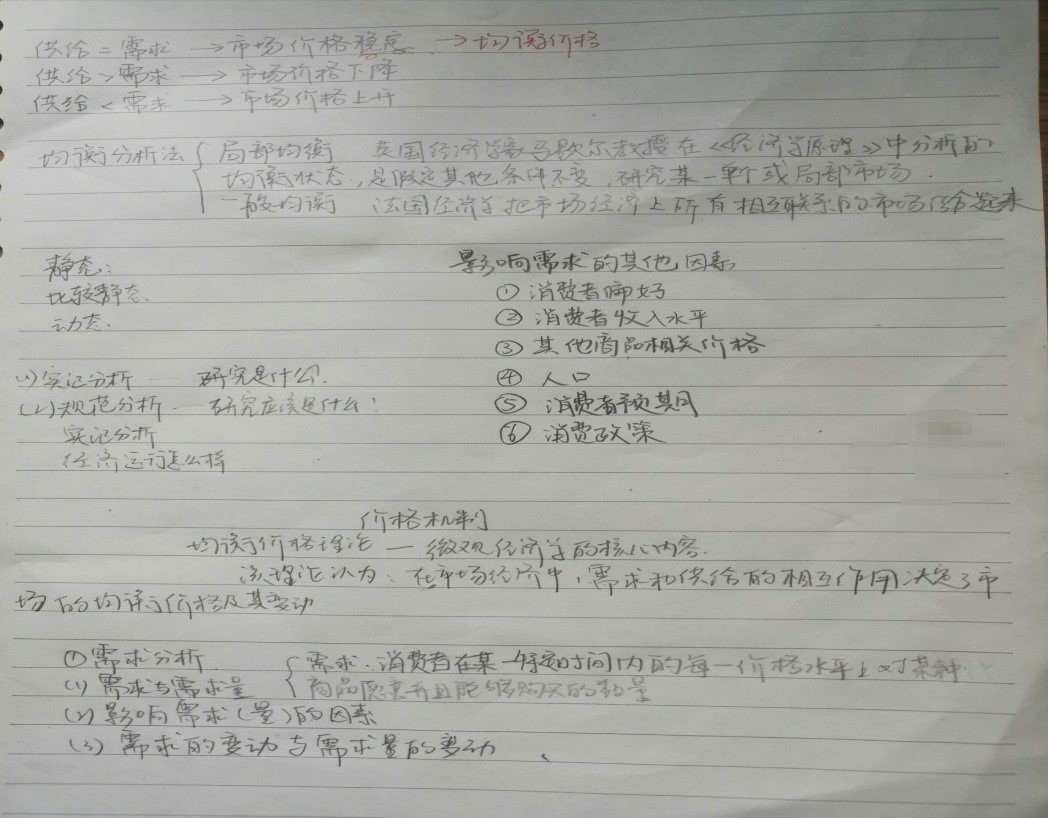 供给=需求 →市场价格稳定 →均衡价格
供给>需求 →市场价格下降
供给<需求 →市场价格上升
均衡分析法{局部均衡 英国经济学家马歇尔教授在《经济学原理》中分析的
均衡状态,是假定其他条件不变,研究某一单个或局部市场.
一般均衡 法国经济学把市场经济上所有相互联系的市场
静态: 影响需求的其他因素
比较静态. ①消费者嗜好
动态. ②消费者收入水平
③其他商品相关价格
(1)实证分析 研究是什么? ④人口
(2)规范分析 研究应该是什么! ⑤消费者预期
实证分析 ⑥消费政策
经济运行怎么样
价格机制
均衡价格理论—微观经济学的核心内容.
该理论认为:在市场经济中,需求和供给的相互作用决定了市
场的均衡价格及其变动
①需求分析 {需求:消费者在某一特定时间内的每一价格水平上对某种
(1)需求与需求量 商品愿意并且能够购买的数量
(2)影响需求(量)的因素
(3)需求的变动与需求量的变动、